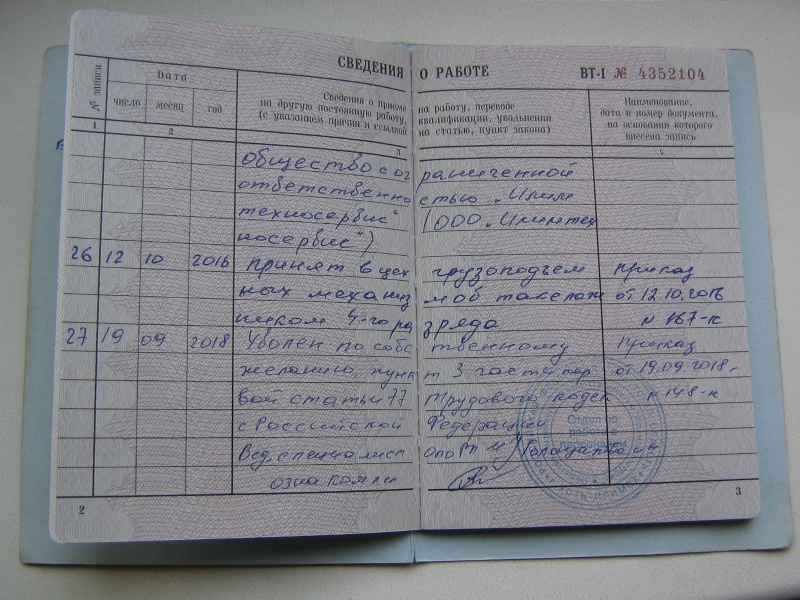 СВЕДЕНИЯ О РАБОТЕ ВТ-I № 4352104
№ записи
Дата
число месяц год
Сведения о приеме на работу, переводе
на другую постоянную работу, квалификации, увольнении
(с указанием причин и ссылкой на статью, пункт закона)
Наименование,
дата и номер документа,
на основании которого
внесена запись
1 2 3 4
общество с ограниченной
ответственностью „Илим
техносервис“ (ООО „Илимтех
носервис“)
26 12 10 2016 принят в цех грузоподъем приказ
ных механизмов такелаж от 12.10.2016
ником 4-го разряда № 167-к
27 19 09 2018 Уволен по собственному приказ
желанию, пункт 3 части пер от 19.09.2018г
вой статьи 77 Трудового кодек № 148-к
с Российской Федерации
Вед. специалист
ознакомлен
Отдел по
работе с
персоналом
2 3